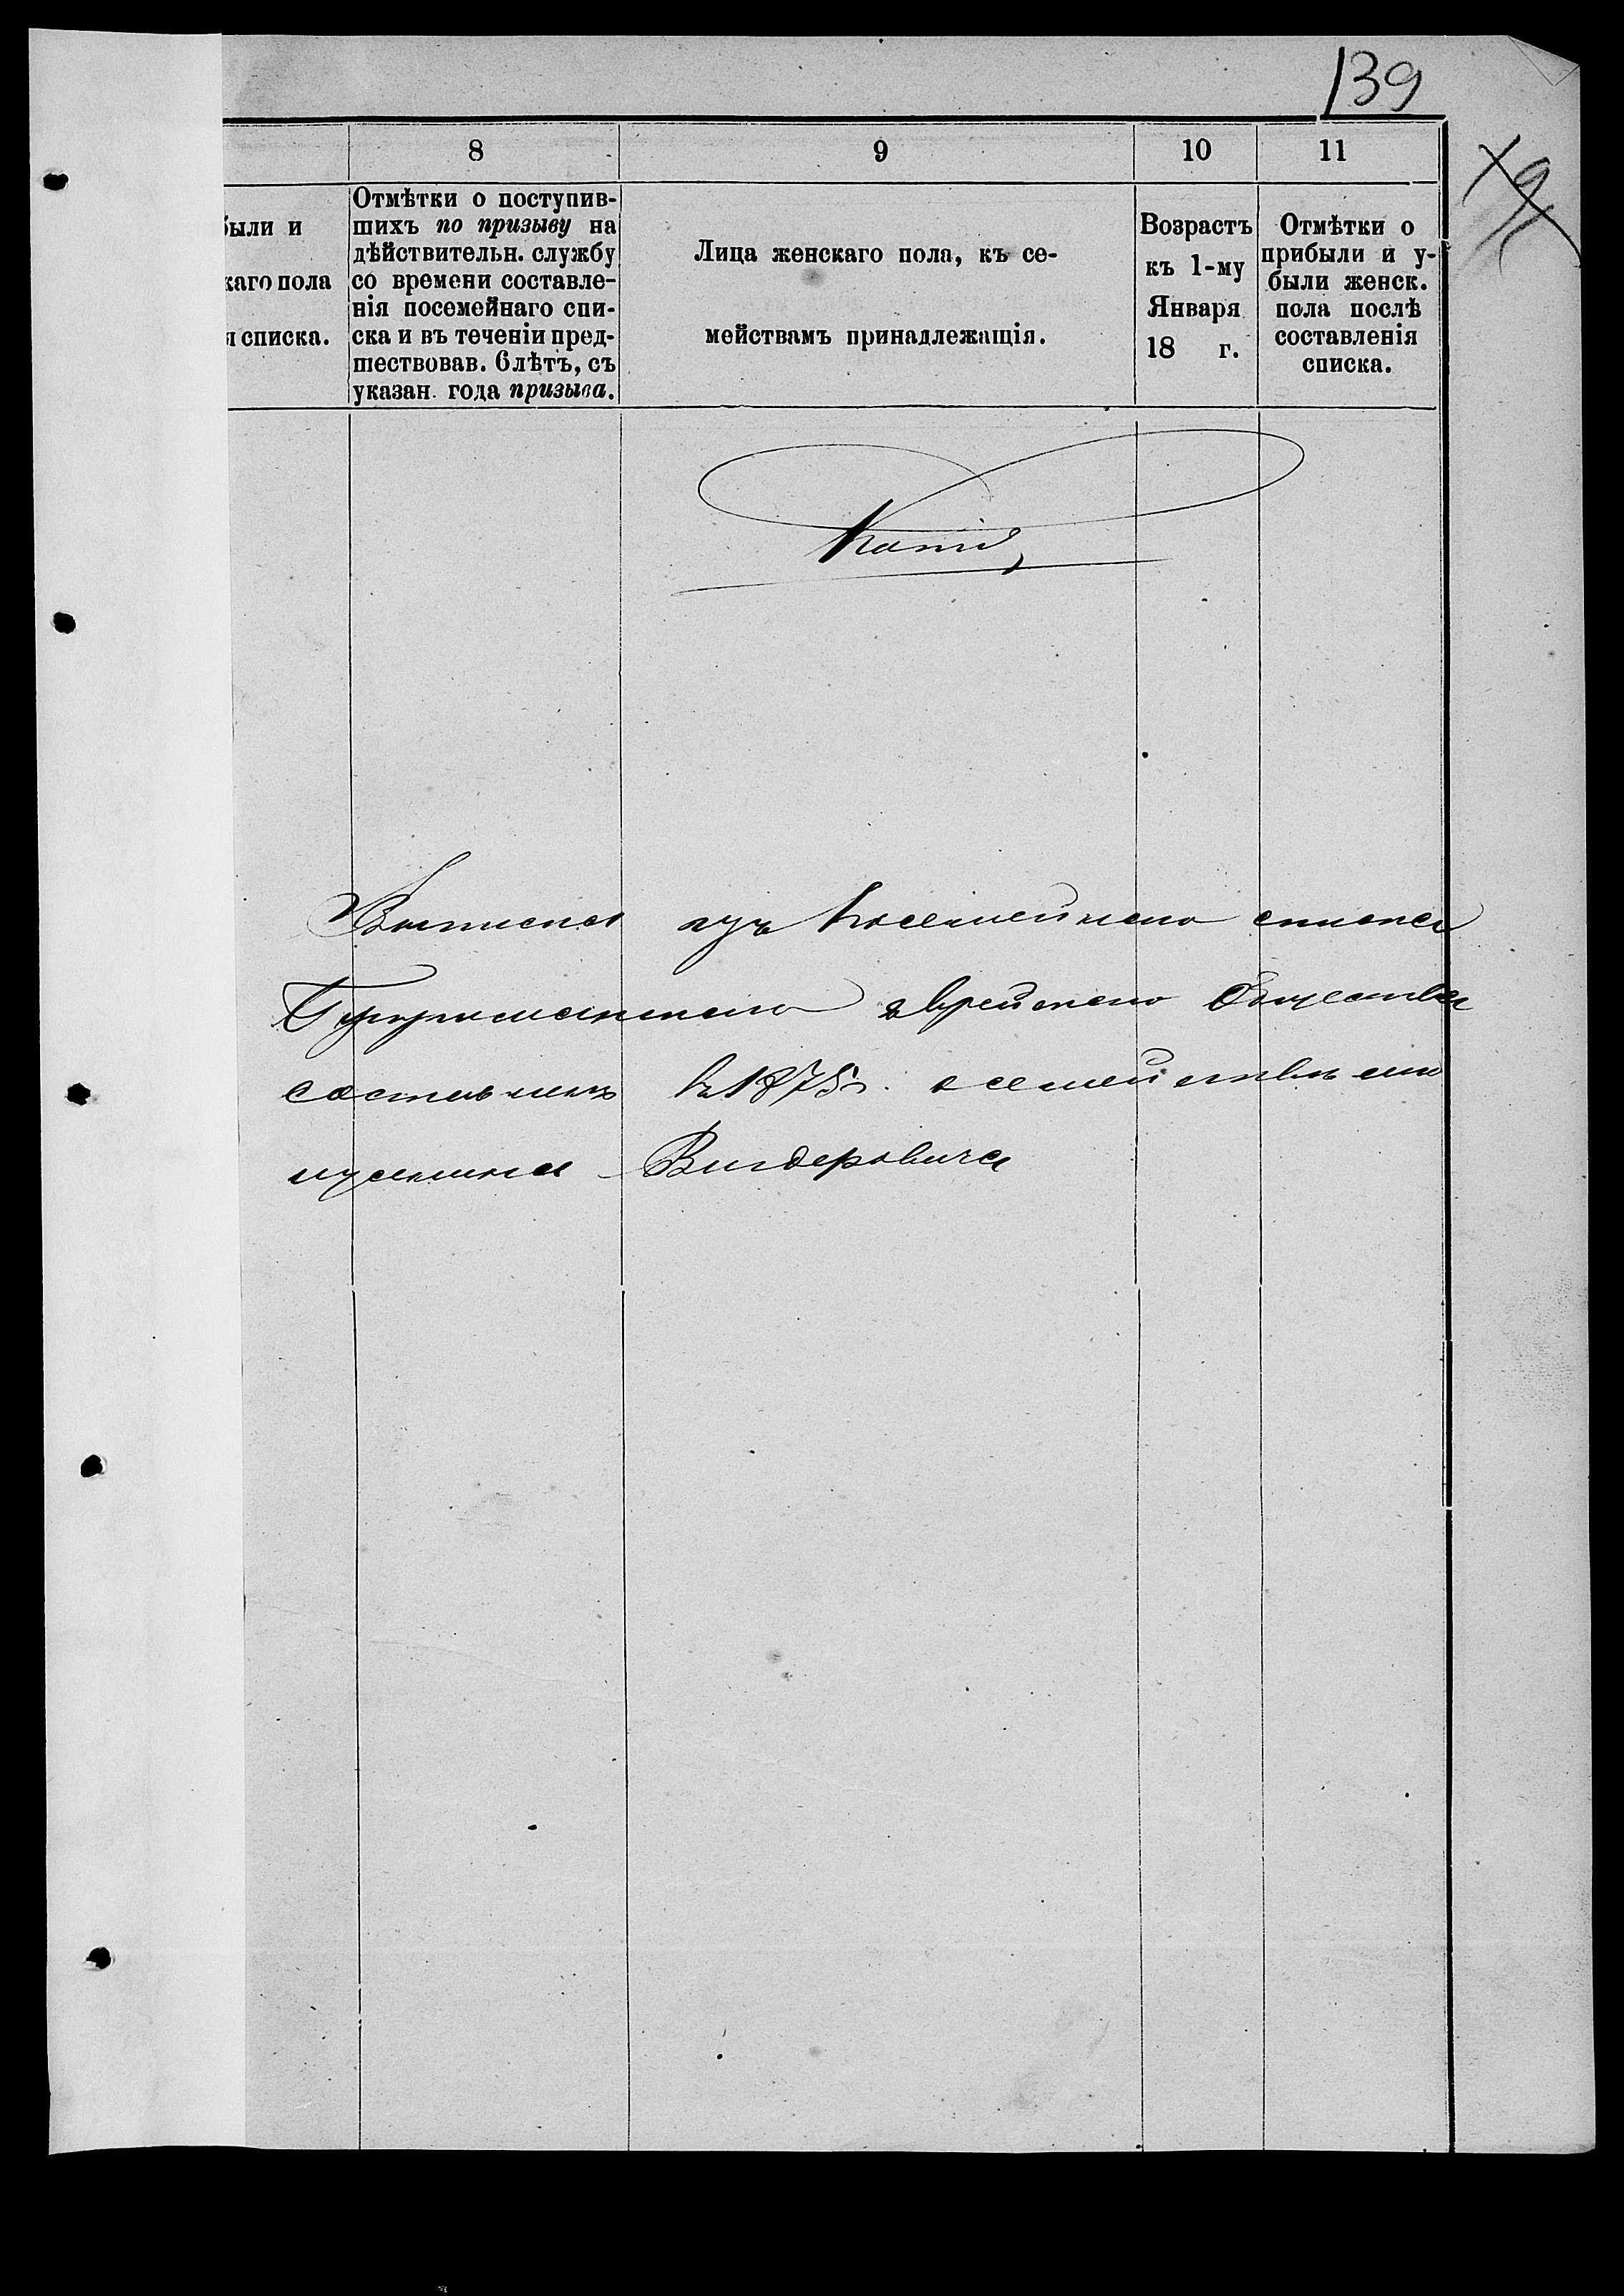 139
8
9
10
11
были и
каго пола
я списка.
Отмѣтки о поступив-
шихъ по призыву на
дѣйствительн. службу
со времени составле-
нія посемейнаго спи-
ска и въ теченіи пред-
шествовав. 6 лѣтъ, съ
указан. года призыва.
Лица женскаго пола, къ се-
мействамъ принадлежащія.
Возрастъ
къ 1-му
Января
18 г.
Отмѣтки о
прибыли и у-
были женск.
пола послѣ
составленія
списка.
Копія
Выписка изъ посемейнаго списка
еврейскаго Общества
въ 1875 г. о семействѣ
Вигдеровича